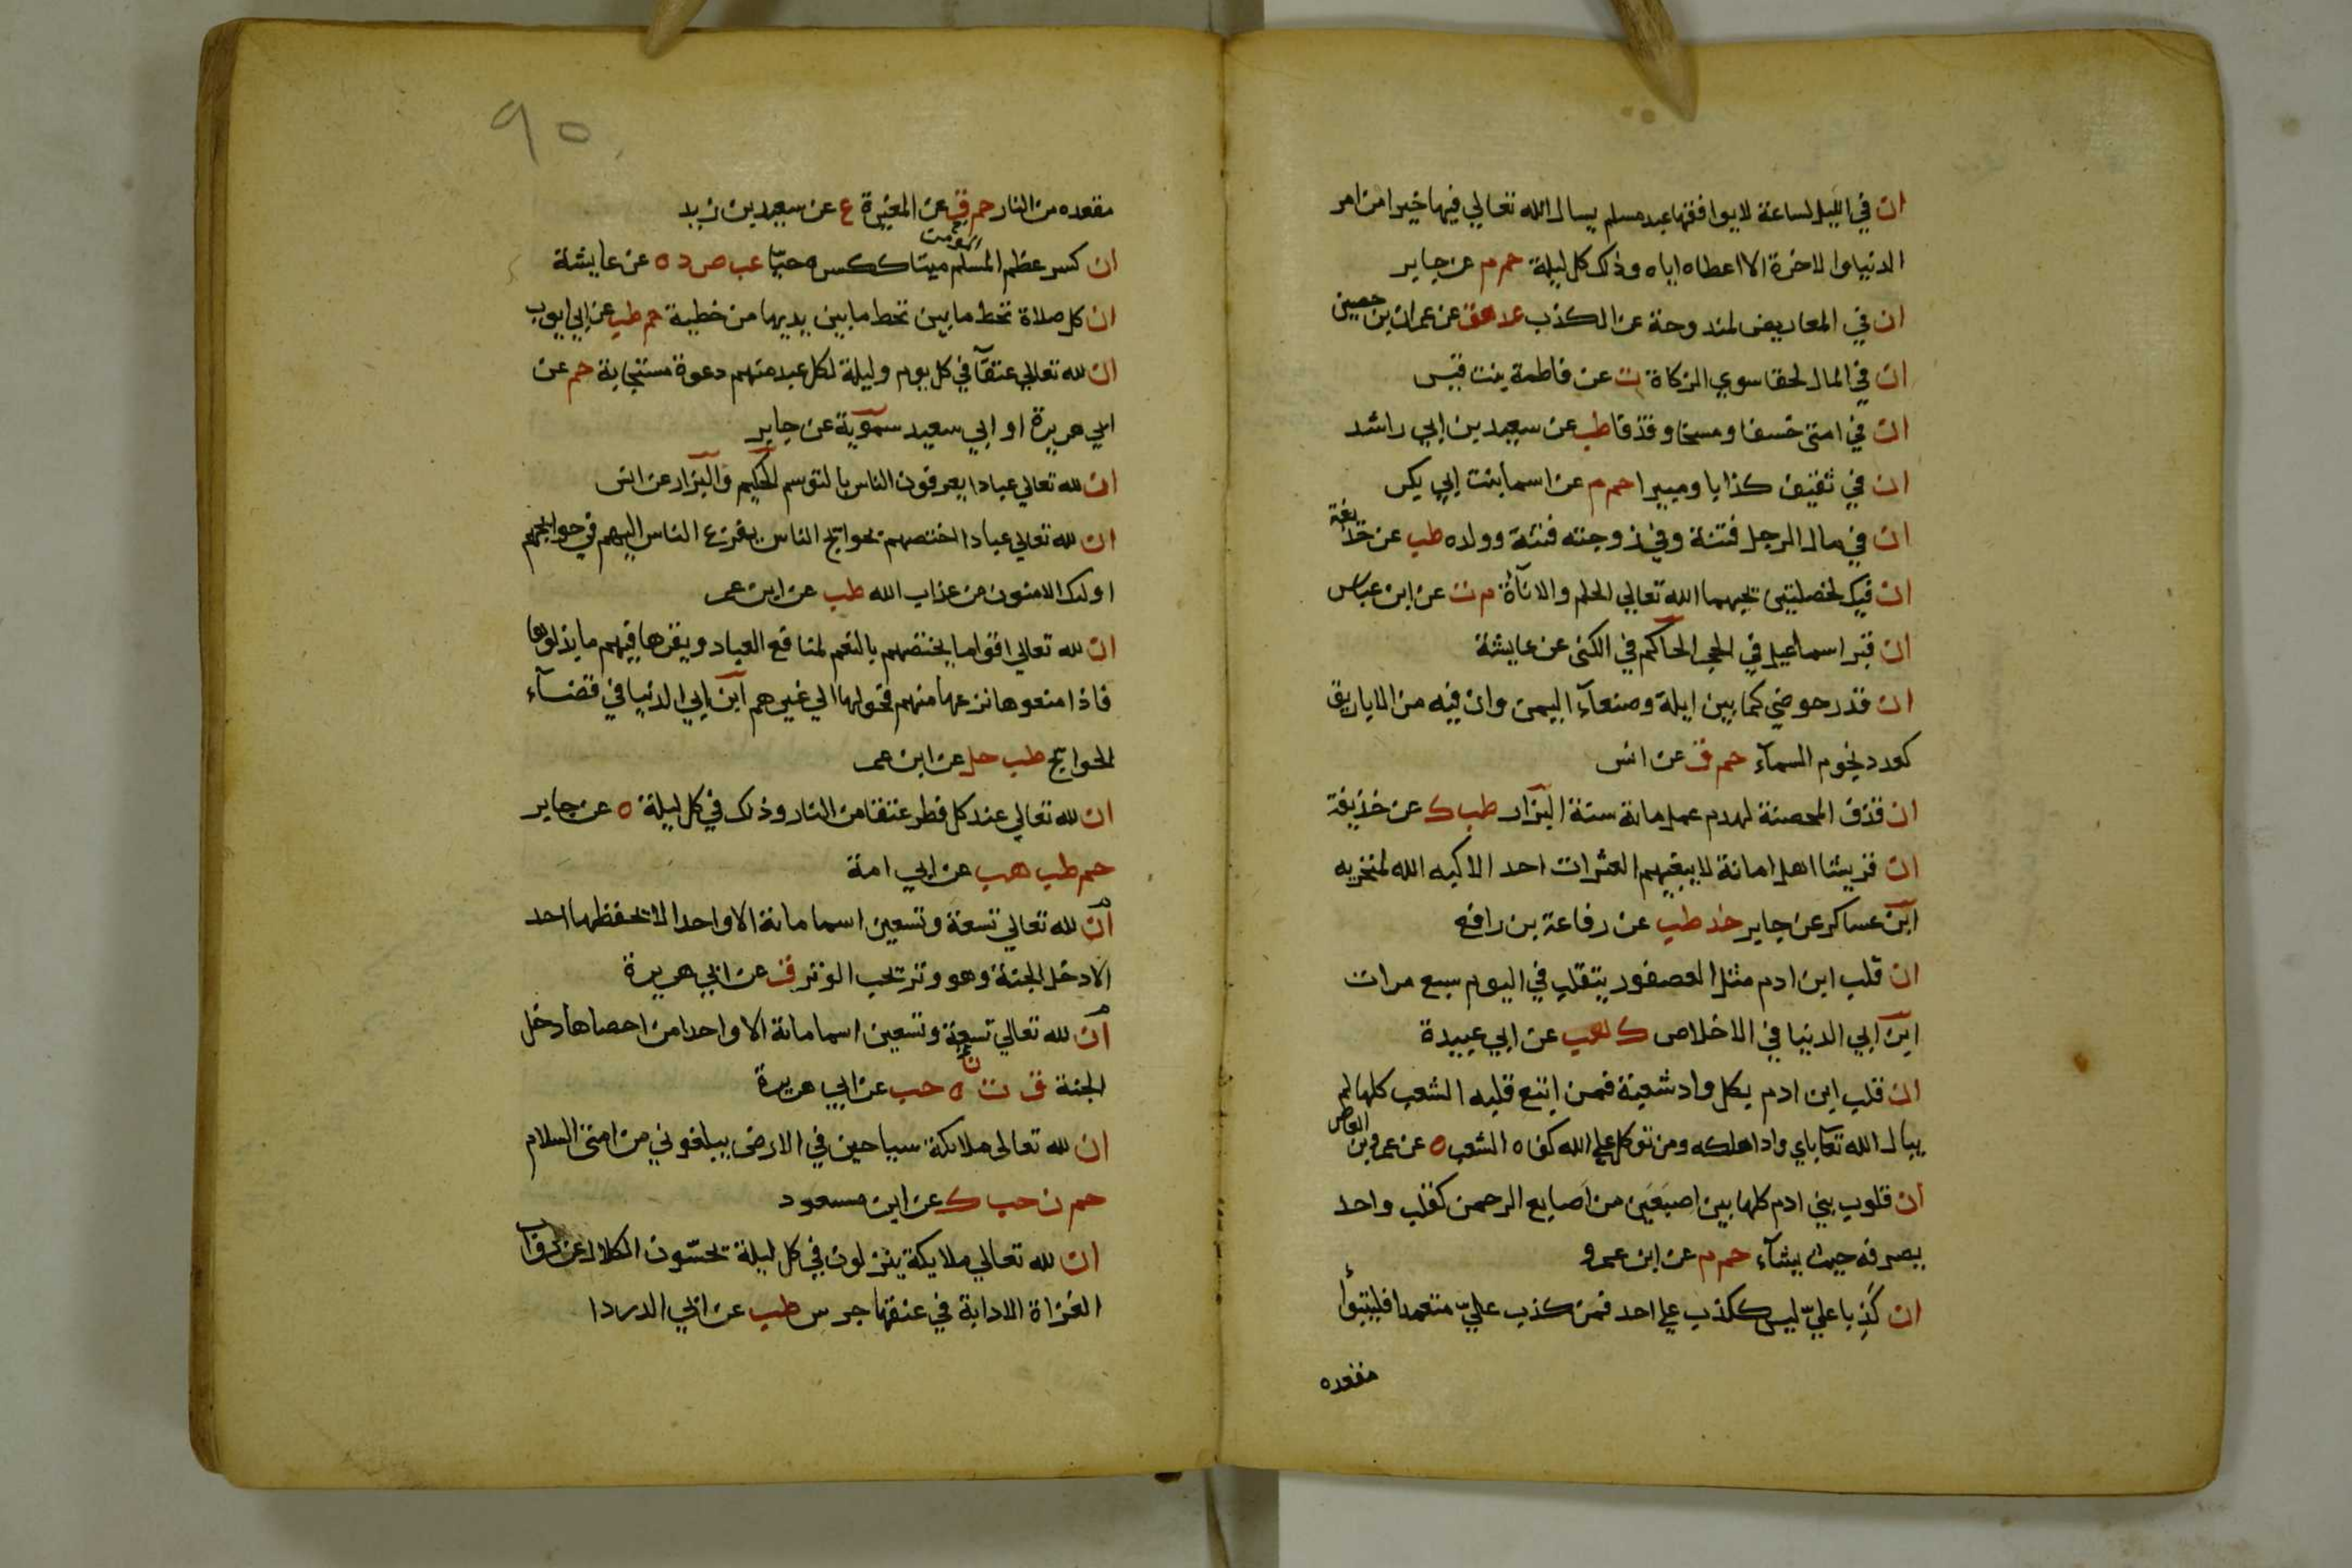 ان في الليل لساعة لا يوافقها عبد مسلم يسال الله تعالي فيها خيرا من امر
الدنيا والاخرة الا اعطاه اياه وذلك كل ليلة حم م عن جابر
ان في المعاريض لمندوحة عن الكذب عد هق عن عمران بن حصين
ان في المال لحقا سوي الزكاة ت عن فاطمة بنت قيس
ان في امتي خسفا ومسخا وقذفا طب عن سعيد بن ابي راشد
ان في ثقيف كذابا ومبيرا حم م عن اسما بنت ابي بكر
ان في مال الرجل فتنة وفي زوجته فتنة وولده طب عن حذيفة
ان فيك لخصلتين يحبهما الله تعالي الحلم والاناة م ت عن ابن عباس
ان قبر اسماعيل في الحجر الحاكم في الكنى عن عايشة
ان قدر حوضي كما بين ايلة وصنعآء اليمن وان فيه من الاباريق
كعدد نجوم السمآء حم ق عن انس
ان قذف المحصنة لهدم عمل مائة سنة البزار طب ك عن حذيفة
ان قريشا اهل امانة لا يبغيهم العثرات احد الا كبه الله لمنخريه
ابن عساكر عن جابر خد طب عن رفاعة بن رافع
ان قلب ابن ادم مثل العصفور يتقلب في اليوم سبع مرات
ابن ابي الدنيا في الاخلاص ك هب عن ابي عبيدة
ان قلب ابن ادم بكل واد شعبة فمن اتبع قلبه الشعب كلها لم
يبال الله تعا باي واد اهلكه ومن توكل علي الله كفاه الشعب ه عن عمرو بن العاص
ان قلوب بني ادم كلها بين اصبعين من اصابع الرحمن كقلب واحد
يصرفه حيث يشآء حم م عن ابن عمرو
ان كذبا عليّ ليس ككذب علي احد فمن كذب عليّ متعمدا فليتبوأ
مقعده
٩٥
مقعده من النار حم ق عن المغيرة ع عن سعيد بن زيد
ان كسر عظم المسلم ميتا ككسره حيّا عب ص د ه عن عايشة
ان كل صلاة تحط ما بين تحط ما بين يديها من خطية حم طب عن ابي ايوب
ان لله تعالي عتقآ في كل يوم وليلة لكل عبد منهم دعوة مستجابة حم عن
ابي هريرة او ابي سعيد سمويه عن جابر
ان لله تعالي عبادا يعرفون الناس بالتوسم الحكيم والبزار عن انس
ان لله تعالي عبادا اختصهم بحوايج الناس يفزع الناس اليهم في حوايجهم
اوليك الامنون من عذاب الله طب عن ابن عمر
ان لله تعالي اقواما يختصهم بالنعم لمنافع العباد ويقرها فيهم ما بذلوها
فاذا منعوها نزعها منهم فحولها الي غيرهم ابن ابي الدنيا في قضآء
الحوايج طب حل عن ابن عمر
ان لله تعالي عند كل فطر عتقا من النار وذلك في كل ليلة ه عن جابر
حم طب هب عن ابي امة
ان لله تعالي تسعة وتسعين اسما مائة الا واحدا لا يحفظها احد
الا دخل الجنة وهو وتر يحب الوتر ق عن ابي هريرة
ان لله تعالي تسعة وتسعين اسما مائة الا واحدا من احصاها دخل
الجنة ق ت ن ه حب عن ابي هريرة
ان لله تعالى ملائكة سياحين في الارض يبلغوني من امتي السلام
حم ن حب ك عن ابن مسعود
ان لله تعالي ملايكة ينزلون في كل ليلة تحسّون الكلال عن دواب
الغزاة الا دابة في عنقها جرس طب عن ابي الدردا